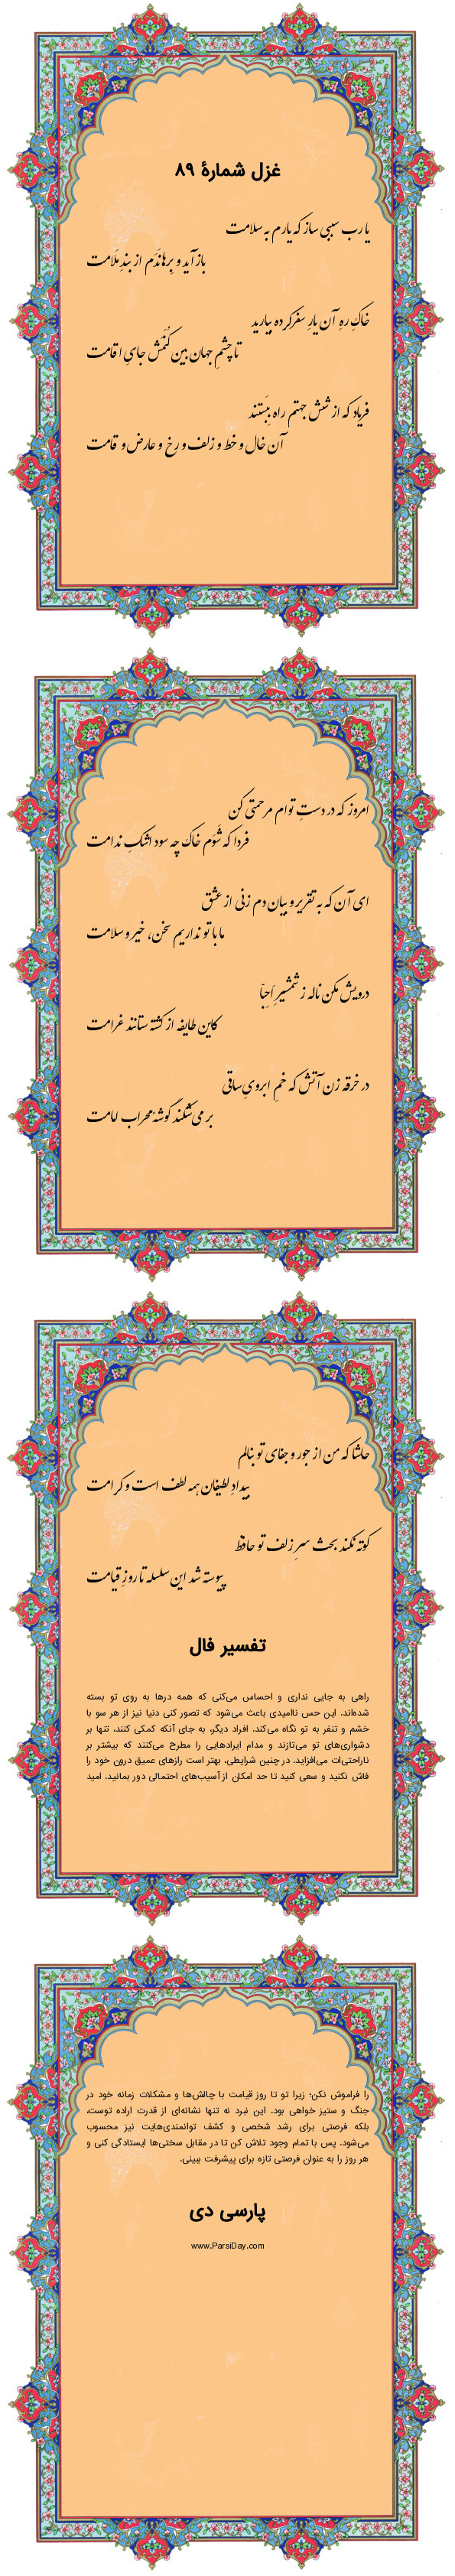 غزل شمارهٔ ۸۹
یا رب سببی ساز که یارم به سلامت
بازآید و بِرهانَدَم از بندِ مَلامت
خاکِ رهِ آن یارِ سفرکرده بیارید
تا چشمِ جهان بین کُنَمَش جایِ اقامت
فریاد که از شش جهتم راه بِبَستند
آن خال و خط و زلف و رخ و عارض و قامت
امروز که در دستِ توام مرحمتی کن
فردا که شَوَم خاک چه سود اشکِ ندامت
ای آن که به تقریر و بیان دم زنی از عشق
ما با تو نداریم سخن، خیر و سلامت
درویش مکن ناله ز شمشیرِ اَحِبّا
کاین طایفه از کشته ستانند غرامت
در خرقه زن آتش که خمِ ابرویِ ساقی
بر می‌شکند گوشهٔ محراب امامت
حاشا که من از جور و جفای تو بنالم
بیدادِ لطیفان همه لطف است و کرامت
کوته نکند بحث سرِ زلف تو حافظ
پیوسته شد این سلسله تا روزِ قیامت
تفسیر فال
راهی به جایی نداری و احساس می‌کنی که همه درها به روی تو بسته
شده‌اند. این حس ناامیدی باعث می‌شود که تصور کنی دنیا نیز از هر سو با
خشم و تنفر به تو نگاه می‌کند. افراد دیگر، به جای آنکه کمکی کنند، تنها بر
دشواری‌های تو می‌تازند و مدام ایرادهایی را مطرح می‌کنند که بیشتر بر
ناراحتی‌ات می‌افزاید. در چنین شرایطی، بهتر است رازهای عمیق درون خود را
فاش نکنید و سعی کنید تا حد امکان از آسیب‌های احتمالی دور بمانید. امید
را فراموش نکن؛ زیرا تو تا روز قیامت با چالش‌ها و مشکلات زمانه خود در
جنگ و ستیز خواهی بود. این نبرد نه تنها نشانه‌ای از قدرت اراده توست،
بلکه فرصتی برای رشد شخصی و کشف توانمندی‌هایت نیز محسوب
می‌شود. پس با تمام وجود تلاش کن تا در مقابل سختی‌ها ایستادگی کنی و
هر روز را به عنوان فرصتی تازه برای پیشرفت ببینی.
پارسی دی
www.ParsiDay.com